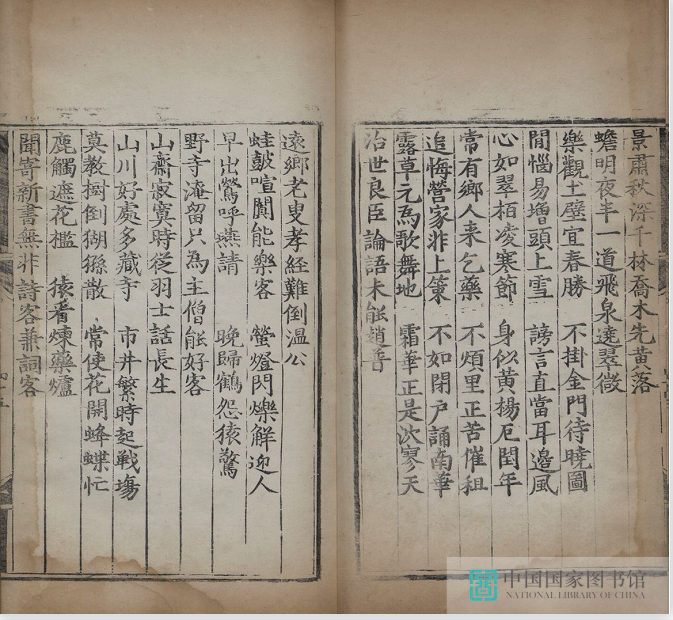 景肅秋深千林喬木先黄落
蟾明夜半一道飛泉遶翠微
樂觀土壁宜春勝　不掛金門待曉圖
閒惱易増頭上雪　謗言直當耳邉風
心如翠栢凌寒節　身似黄楊厄閏年
常有鄉人来乞藥　不煩里正苦催租
追悔營家非上策　不如閉户誦南華
露草元為歌舞地　霜華正是沈寥天
治世良臣論語未能趙普
遠鄉老叟孝經難倒温公
蛙鼓喧闐能樂客　螢燈閃爍鮮迎人
早出鶯呼燕請　晚歸鶴怨猿驚
野寺淹留只為主僧能好客
山齋寂寞時從羽士話長生
山川好處多藏寺　市井繁時起戦塲
莫教樹倒猢猻散　常使花開蜂蝶忙
鹿觸遮花檻　猿看煉藥爐
聞寄新書無非詩客兼詞客
中国国家图书馆
NATIONAL LIBRARY OF CHINA